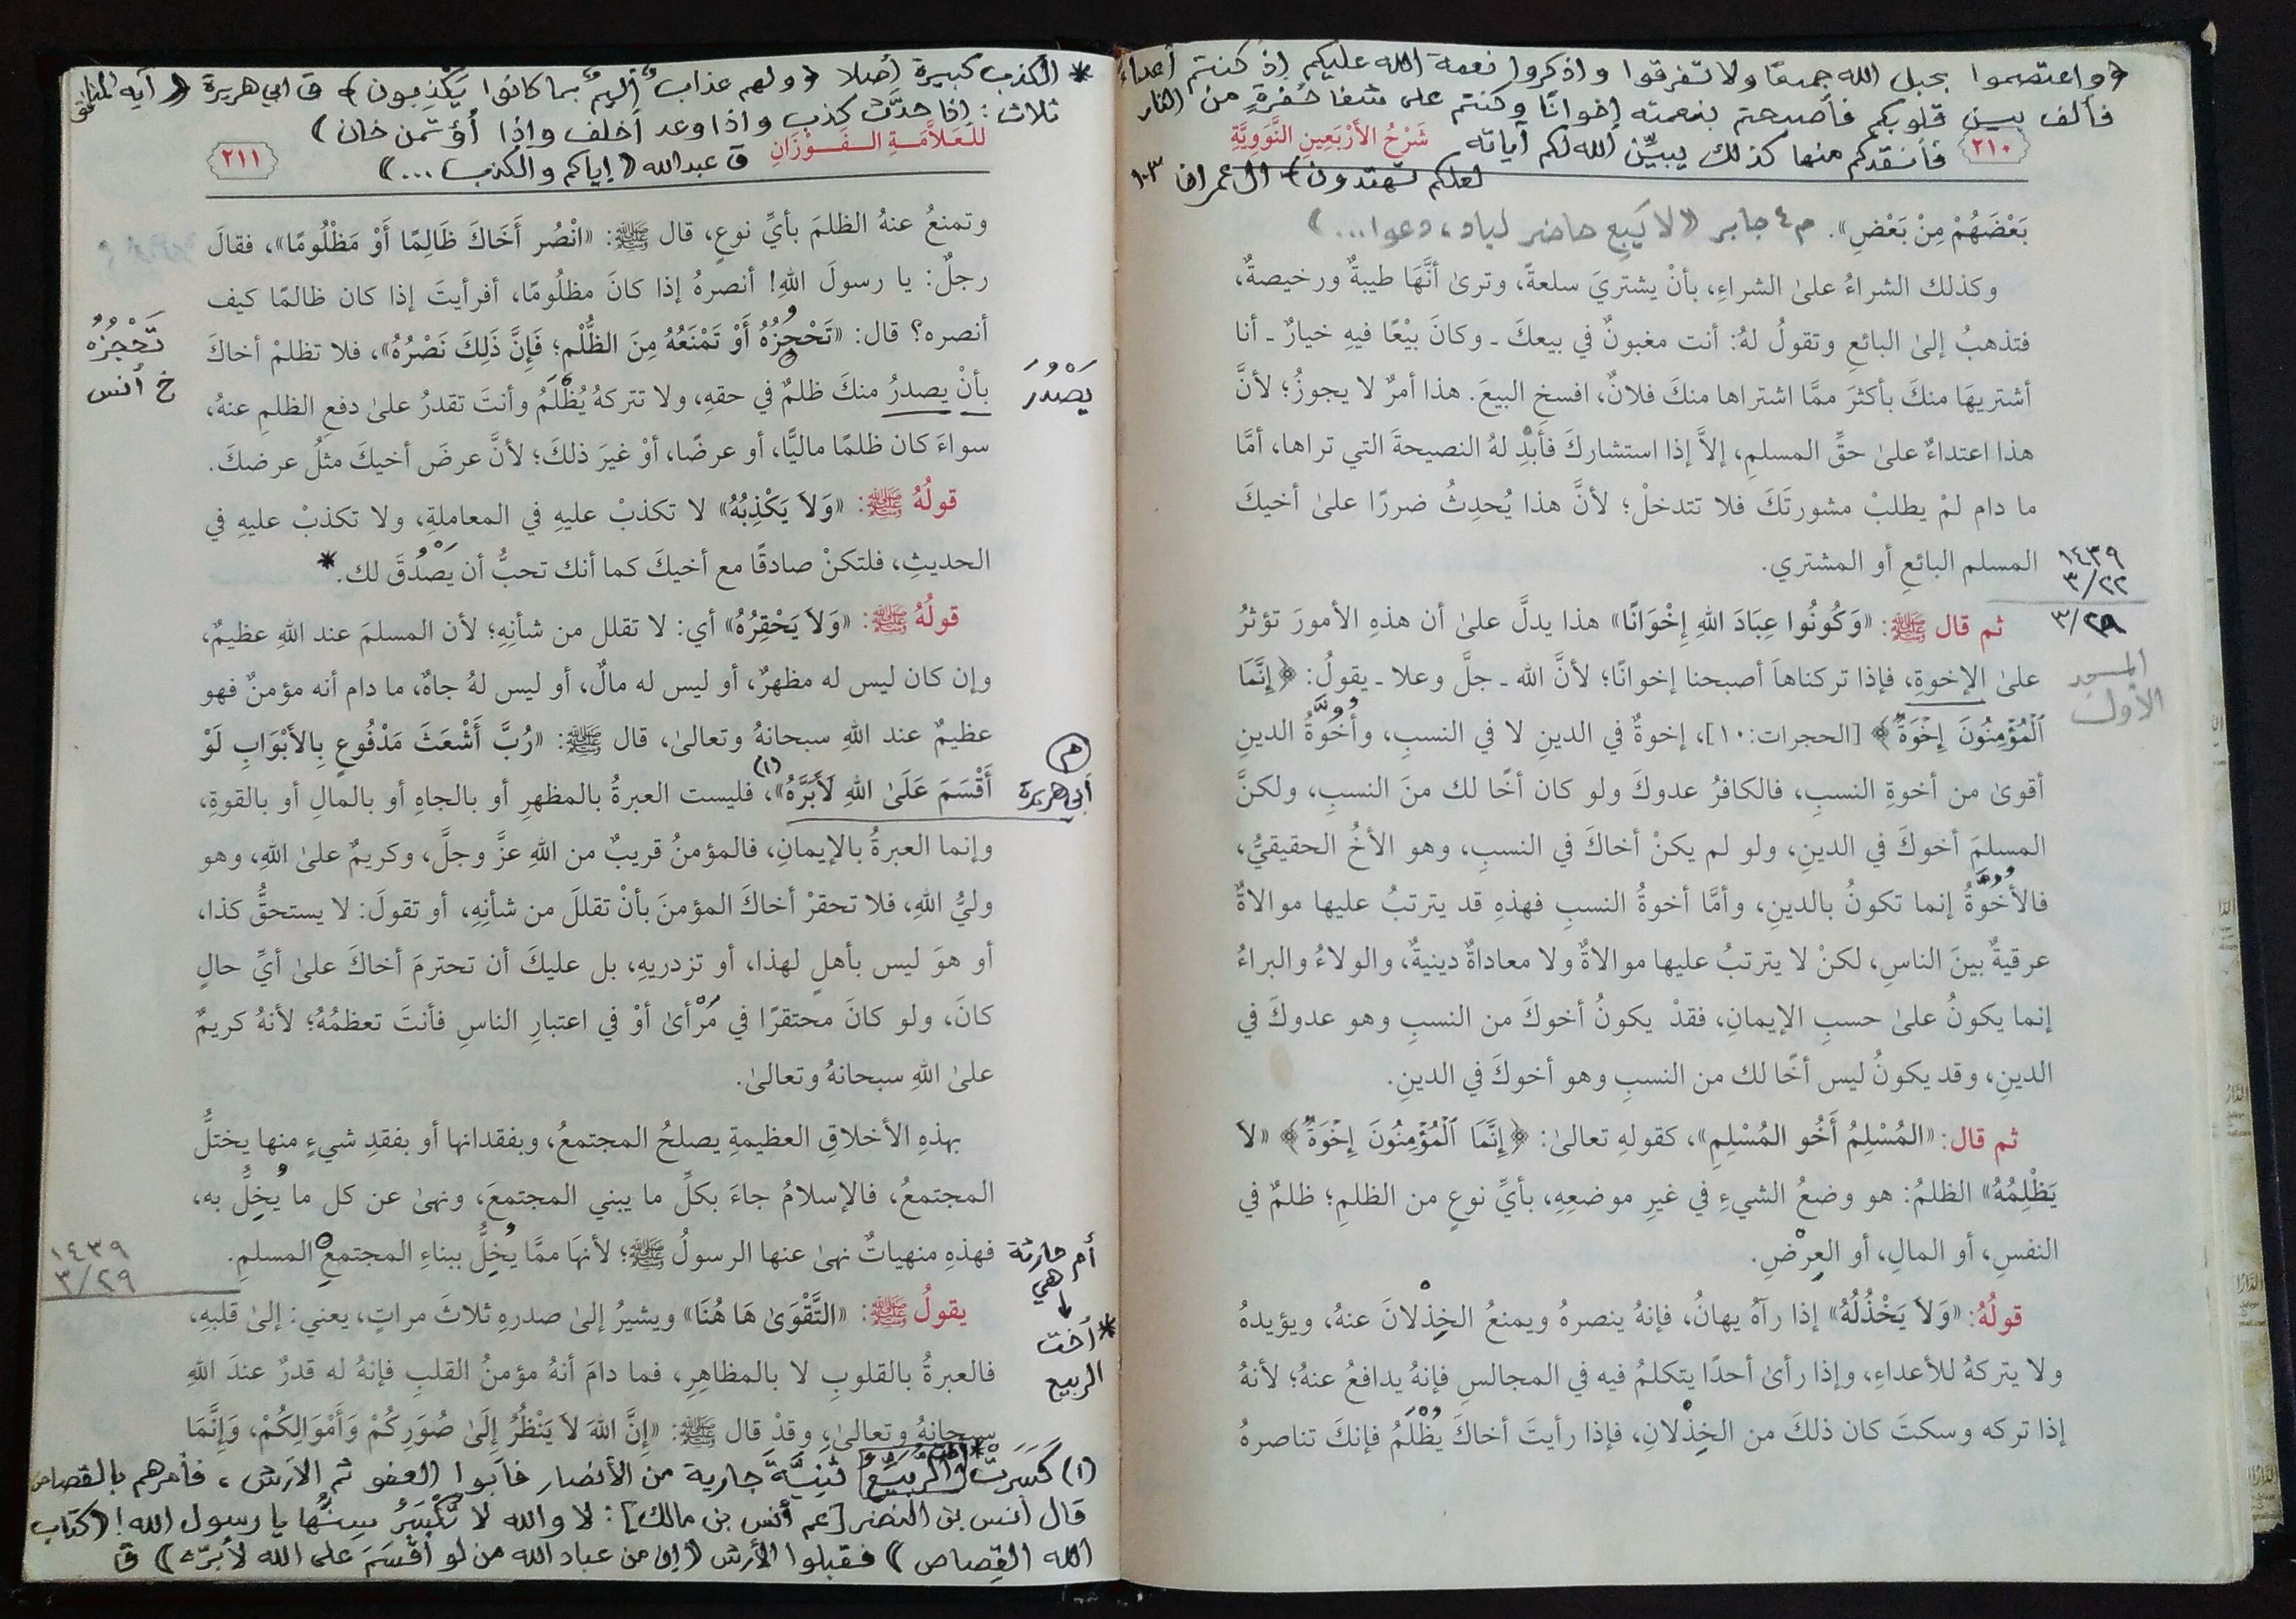 ﴿واعتصموا بحبل الله جميعًا ولا تفرقوا واذكروا نعمة الله عليكم إذ كنتم أعداء
فألف بين قلوبكم فأصبحتم بنعمته إخوانًا وكنتم على شفا حُفرةٍ من النار
فأنقذكم منها كذلك يبيِّن الله لكم آياته
لعلكم تهتدون﴾ ال عمران ١٠٣
٢١٠
شَرْحُ الأَرْبَعِينِ النَّوَوِيَّةِ
بَعْضَهُمْ مِنْ بَعْضِ». م٤ جابر «لا يَبِعِ حاضر لباد، دعوا...»
وكذلك الشراءُ علىٰ الشراءِ، بأنْ يشتريَ سلعةً، وترىٰ أنَّهَا طيبةٌ ورخيصةٌ،
فتذهبُ إلىٰ البائعِ وتقولُ لهُ: أنت مغبونٌ في بيعكَ ـ وكانَ بيْعًا فيهِ خيارٌ ـ أنا
أشتريهَا منكَ بأكثرَ ممَّا اشتراها منكَ فلانٌ، افسخِ البيعَ. هذا أمرٌ لا يجوزُ؛ لأنَّ
هذا اعتداءٌ علىٰ حقِّ المسلمِ، إلاَّ إذا استشاركَ فأَبْدِ لهُ النصيحةَ التي تراها، أمَّا
ما دام لمْ يطلبْ مشورتَكَ فلا تتدخلْ؛ لأنَّ هذا يُحدِثُ ضررًا علىٰ أخيكَ
المسلم البائعِ أو المشتري.
١٤٣٩
٣/٢٢
٣/٢٩
ثم قال ﷺ: «وَكُونُوا عِبَادَ اللهِ إِخْوَانًا» هذا يدلَّ علىٰ أن هذهِ الأمورَ تؤثرُ
المسجد
الأول
علىٰ الإخوةِ، فإذا تركناهاَ أصبحنا إخوانًا؛ لأنَّ الله ـ جلَّ وعلا ـ يقولُ: ﴿إِنَّمَا
ٱلْمُؤْمِنُونَ إِخْوَةٌ﴾ [الحجرات:١٠]، إخوةٌ في الدينِ لا في النسبِ، وأُخُوَّةُ الدينِ
أقوىٰ من أخوةِ النسبِ، فالكافرُ عدوكَ ولو كان أخًا لك منَ النسبِ، ولكنَّ
المسلمَ أخوكَ في الدينِ، ولو لم يكنْ أخاكَ في النسبِ، وهو الأخُ الحقيقيُّ،
فالأُخُوَّةُ إنما تكونُ بالدينِ، وأمَّا أخوةُ النسبِ فهذهِ قد يترتبُ عليها موالاةٌ
عرقيةٌ بينَ الناسِ، لكنْ لا يترتبُ عليها موالاةٌ ولا معاداةٌ دينيةٌ، والولاءُ والبراءُ
إنما يكونُ علىٰ حسبِ الإيمانِ، فقدْ يكونُ أخوكَ من النسبِ وهو عدوكَ في
الدينِ، وقد يكونُ ليس أخًا لك من النسبِ وهو أخوكَ في الدينِ.
ثم قال: «المُسْلِمُ أَخُو المُسْلِمِ»، كقولهِ تعالىٰ: ﴿إِنَّمَا ٱلْمُؤْمِنُونَ إِخْوَةٌ﴾ «لاَ
يَظْلِمُهُ» الظلمُ: هو وضعُ الشيءِ في غيرِ موضعِهِ، بأيِّ نوعٍ من الظلمِ؛ ظلمٌ في
النفسِ، أو المالِ، أو العِرْضِ.
قولُهُ: «وَلاَ يَخْذُلُهُ» إذا رآهُ يهانُ، فإنهُ ينصرهُ ويمنعُ الخِذْلانَ عنهُ، ويؤيدهُ
ولا يتركهُ للأعداءِ، وإذا رأىٰ أحدًا يتكلمُ فيه في المجالسِ فإنهُ يدافعُ عنهُ؛ لأنهُ
إذا تركه وسكتَ كان ذلكَ من الخِذْلانِ، فإذا رأيتَ أخاكَ يُظْلَمُ فإنكَ تناصرهُ
* الكذب كبيرة أصلا ﴿ولهم عذاب أليم بما كانوا يَكْذِبون﴾ ق ابي هريرة «آية المنافق
ثلاث: إذا حدَّث كذب وإذا وعد أخلف وإذا أُؤتمن خان»
ق عبدالله «إياكم والكذب...»
للْعَلاَّمَةِ الفَوْزَانِ
٢١١
وتمنعُ عنهُ الظلمَ بأيِّ نوعٍ، قال ﷺ: «انْصُر أَخَاكَ ظَالِمًا أَوْ مَظْلُومًا»، فقالَ
رجلٌ: يا رسولَ اللهِ! أنصرهُ إذا كانَ مظلُومًا، أفرأيتَ إذا كان ظالمًا كيف
أنصره؟ قال: «تَحْجِزُهُ أَوْ تَمْنَعُهُ مِنَ الظُّلْمِ؛ فَإِنَّ ذَلِكَ نَصْرُهُ»، فلا تظلمْ أخاكَ
تَحْجُزُه
خ أنس
بأنْ يصدرُ منكَ ظلمٌ في حقهِ، ولا تتركهُ يُظْلَمُ وأنتَ تقدرُ علىٰ دفعِ الظلمِ عنهُ،
يَصْدُرَ
سواءَ كان ظلمًا ماليًّا، أو عرضًا، أوْ غيرَ ذلكَ؛ لأنَّ عرضَ أخيكَ مثلُ عرضكَ.
قولُهُ ﷺ: «وَلاَ يَكْذِبُهُ» لا تكذبْ عليهِ في المعاملةِ، ولا تكذبْ عليهِ في
الحديثِ، فلتكنْ صادقًا مع أخيكَ كما أنك تحبُّ أن يَصْدُقَ لك.*
قولُهُ ﷺ: «وَلاَ يَحْقِرُهُ» أي: لا تقلل من شأنِهِ؛ لأن المسلمَ عند اللهِ عظيمٌ،
وإن كان ليس له مظهرٌ، أو ليس له مالٌ، أو ليس لهُ جاهٌ، ما دام أنه مؤمنٌ فهو
عظيمٌ عند اللهِ سبحانهُ وتعالىٰ، قال ﷺ: «رُبَّ أَشْعَثَ مَدْفُوعٍ بِالأَبْوَابِ لَوْ
م
أبي هريرة
أَقْسَمَ عَلَىٰ اللهِ لَأَبَرَّهُ»(١)، فليست العبرةُ بالمظهرِ أو بالجاهِ أو بالمالِ أو بالقوةِ،
وإنما العبرةُ بالإيمانِ، فالمؤمنُ قريبٌ من اللهِ عزَّ وجلَّ، وكريمٌ علىٰ اللهِ، وهو
وليُّ اللهِ، فلا تحقرْ أخاكَ المؤمنَ بأنْ تقللَ من شأنِهِ، أو تقولَ: لا يستحقُّ كذا،
أو هوَ ليس بأهلٍ لهذا، أو تزدريهِ، بل عليكَ أن تحترمَ أخاكَ علىٰ أيِّ حالٍ
كانَ، ولو كانَ محتقرًا في مَرْأىٰ أوْ في اعتبارِ الناسِ فأنتَ تعظمُهُ؛ لأنهُ كريمٌ
علىٰ اللهِ سبحانهُ وتعالىٰ.
بهذهِ الأخلاقِ العظيمةِ يصلحُ المجتمعُ، وبفقدانها أو بفقدِ شيءٍ منها يختلُّ
المجتمعُ، فالإسلامُ جاءَ بكلِّ ما يبني المجتمعَ، ونهىٰ عن كل ما يُخِلُّ به،
فهذهِ منهياتٌ نهىٰ عنها الرسولُ ﷺ؛ لأنهَا ممَّا يُخِلُّ ببناءِ المجتمعِ المسلمِ.
١٤٣٩
٣/٢٩
أم حارثة
هي
*أخت
الربيع
يقولُ ﷺ: «التَّقْوَىٰ هَا هُنَا» ويشيرُ إلىٰ صدرهِ ثلاثَ مراتٍ، يعني: إلىٰ قلبهِ،
فالعبرةُ بالقلوبِ لا بالمظاهِرِ، فما دامَ أنهُ مؤمنُ القلبِ فإنهُ له قدرٌ عندَ اللهِ
سبحانهُ وتعالىٰ، وقدْ قال ﷺ: «إِنَّ اللهَ لاَ يَنْظُرُ إِلَىٰ صُوَرِكُمْ وَأَمْوَالِكُمْ، وَإِنَّمَا
(١) كَسَرَتْ الرُّبَيِّعُ ثَنِيَّةَ جارية من الأنصار فأبوا العفو ثم الأرش، فأمرهم بالقصاص
قال أنس بن النضر [عم أنس بن مالك]: لا والله لا تُكْسَرُ سِنُّها يا رسول الله! «كتاب
الله القِصاص» فقبلوا الأرش «إن من عباد الله من لو أقسَمَ على الله لأبرّه» ق